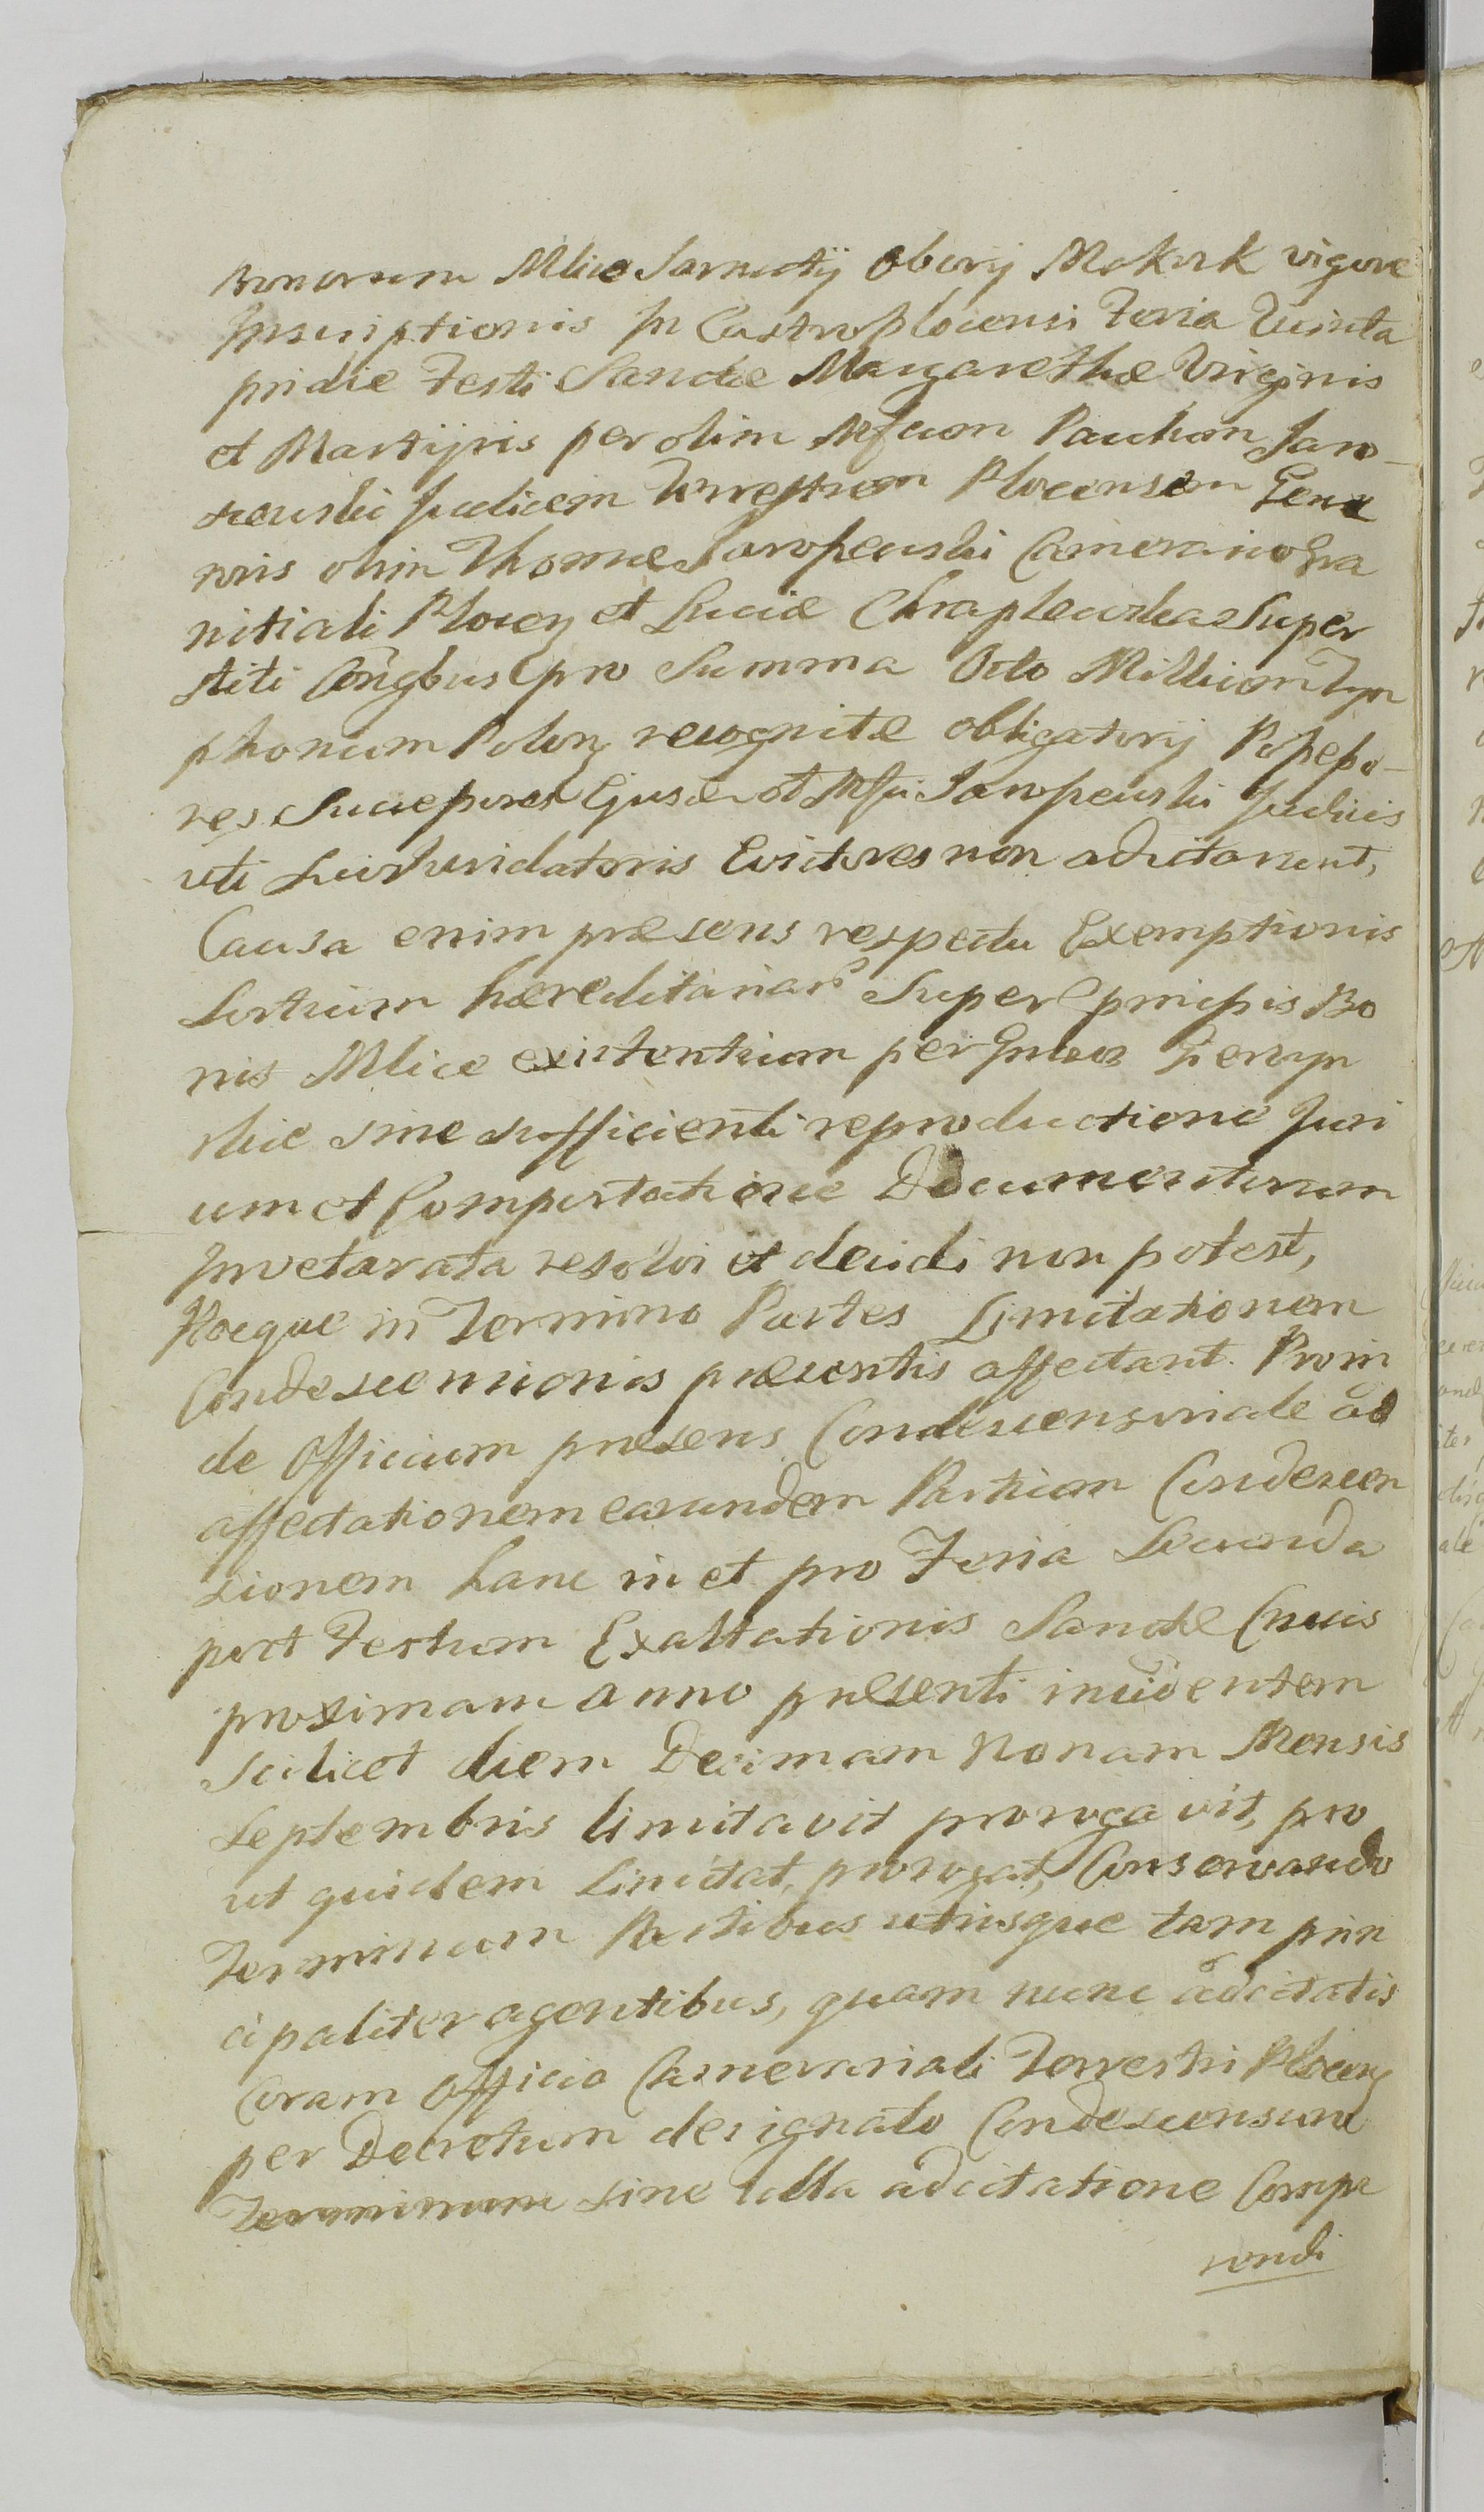 Bonorum Mlice Sarnuty Obory Mokrk vigore
Inscriptionis in Castro Plocensi Feria Quinta
pridie Festi Sanctæ Margarethæ Virginis
et Martyris per olim Mfcum Paulum Jaro-
szewski Judicem Terrestrem Plocensem Gene
rosis olim Thomæ Jaroszewski Camerario Gra
nitiali Plocen et Luciæ Chraplewska Super
stiti Congbus pro Summa Octo Millium Tym
phonum Polon recognitæ obligatorij Possesso-
res Successores Ejusd et Mfci Jaroszewski Judicis
uti Evictores non adcitarunt,
Causa enim præsens respectu Exemptionis
Sortium hæreditariar Super præmissis Bo
nis Mlice existentium per
skie sine sufficienti reproductione Juri
um et Comportatione Documentorum
Invetarata resolvi et decidi non potest,
Hocque in Termino Partes Limitationem
Condescensionis præsentis affectant. Proin
de Officium præsens Condescensoriale ad
affectationem earundem Partium Condescen
sionem hanc in et pro Feria Secunda
post Festum Exaltationis Sanctæ Crucis
proximam anno præsenti incidentem
scilicet diem Decimam Nonam Mensis
Septembris limitavit prorogavit, pro
ut quidem limitat, prorogat, Conservando
Terminum Partibus utrisque tam prin
cipaliter agentibus, quam nunc adcitatis
Coram Officio Camerariali Terrestri Plocen
per Decretum designato Condescensur
Terminum sine ulla adcitatione Compa
rendi